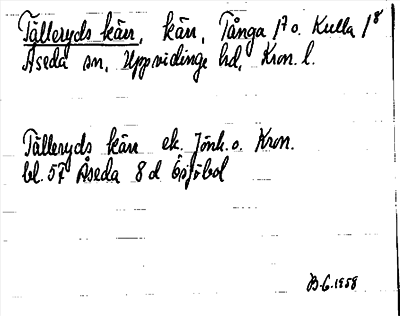 Tälleryds kärr, kärr, Tånga 1⁷ o. Kulla 1⁸
Åseda sn, Uppvidinge hd, Kron. l.
Tälleryds kärr ek. Jönk. o. Kron.
bl. 57 Åseda 8 d Ösjöbol
B-G. 1958